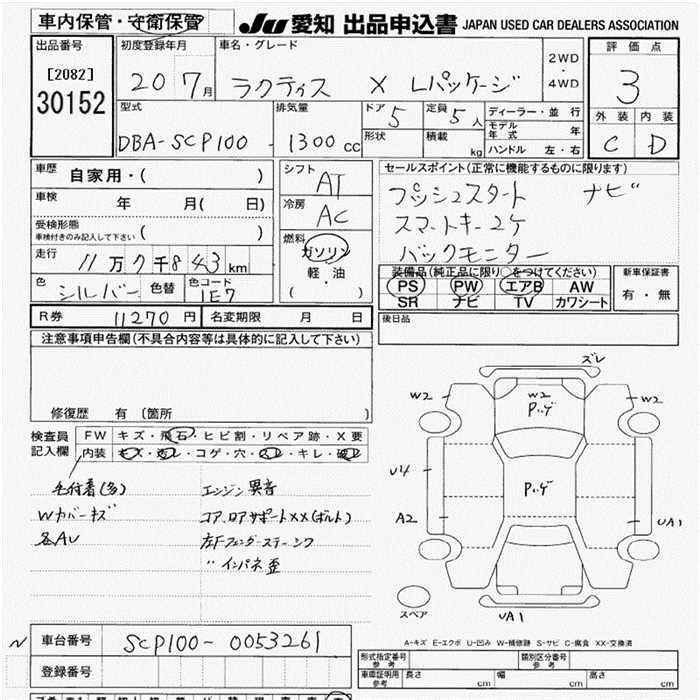 車内保管・守衛保管
JU 愛知 出品申込書 JAPAN USED CAR DEALERS ASSOCIATION
出品番号
[2082]
30152
初度登録年月
20 7月
車名・グレード
ラクティス X Lパッケージ
2WD
・
4WD
評価点
3
外装 内装
C D
型式
DBA-SCP100
排気量
1300 cc
ドア 5
形状
定員 5人
積載 kg
ディーラー・並行
モデル年式 年
ハンドル 左・右
車歴 自家用・( )
車検 年 月( 日)
受検形態
車検付きのみ記入して下さい ( )
走行 11万7千843km
色 シルバー 色替
色コード 1E7
シフト AT
冷房 AC
燃料
ガソリン
軽・油
( ・ )
セールスポイント(正常に機能するものに限ります)
プッシュスタート ナビ
スマートキー2ケ
バックモニター
装備品(純正品に限り○をつけてください)
PS PW エアB AW
SR ナビ TV カワシート
新車保証書
有・無
R券 11270円
名変期限 月 日
後日品
注意事項申告欄(不具合内容等は具体的に記入して下さい)
修復歴 有 [箇所 ]
検査員記入欄
FW キズ・飛石・ヒビ割・リペア跡・X要
内装 キズ・汚レ・コゲ・穴・スレ・キレ・破レ
毛付着(多) エンジン異音
Wカバーキズ コア、ロアサポートXX(ボルト)
各AU 左Fフェンダーステーシワ
〃インパネ歪
ズレ
W2 W2 W2
Pハゲ
U4 Pハゲ
A2 UA1
スペア UA1
A-キズ E-エクボ U-凹み W-補修跡 S-サビ C-腐食 XX-交換済
N 車台番号 SCP100-0053261
登録番号
形式指定番号 参考
類別区分番号 参考
車庫証明用 参考 長さ cm 幅 cm 高さ cm